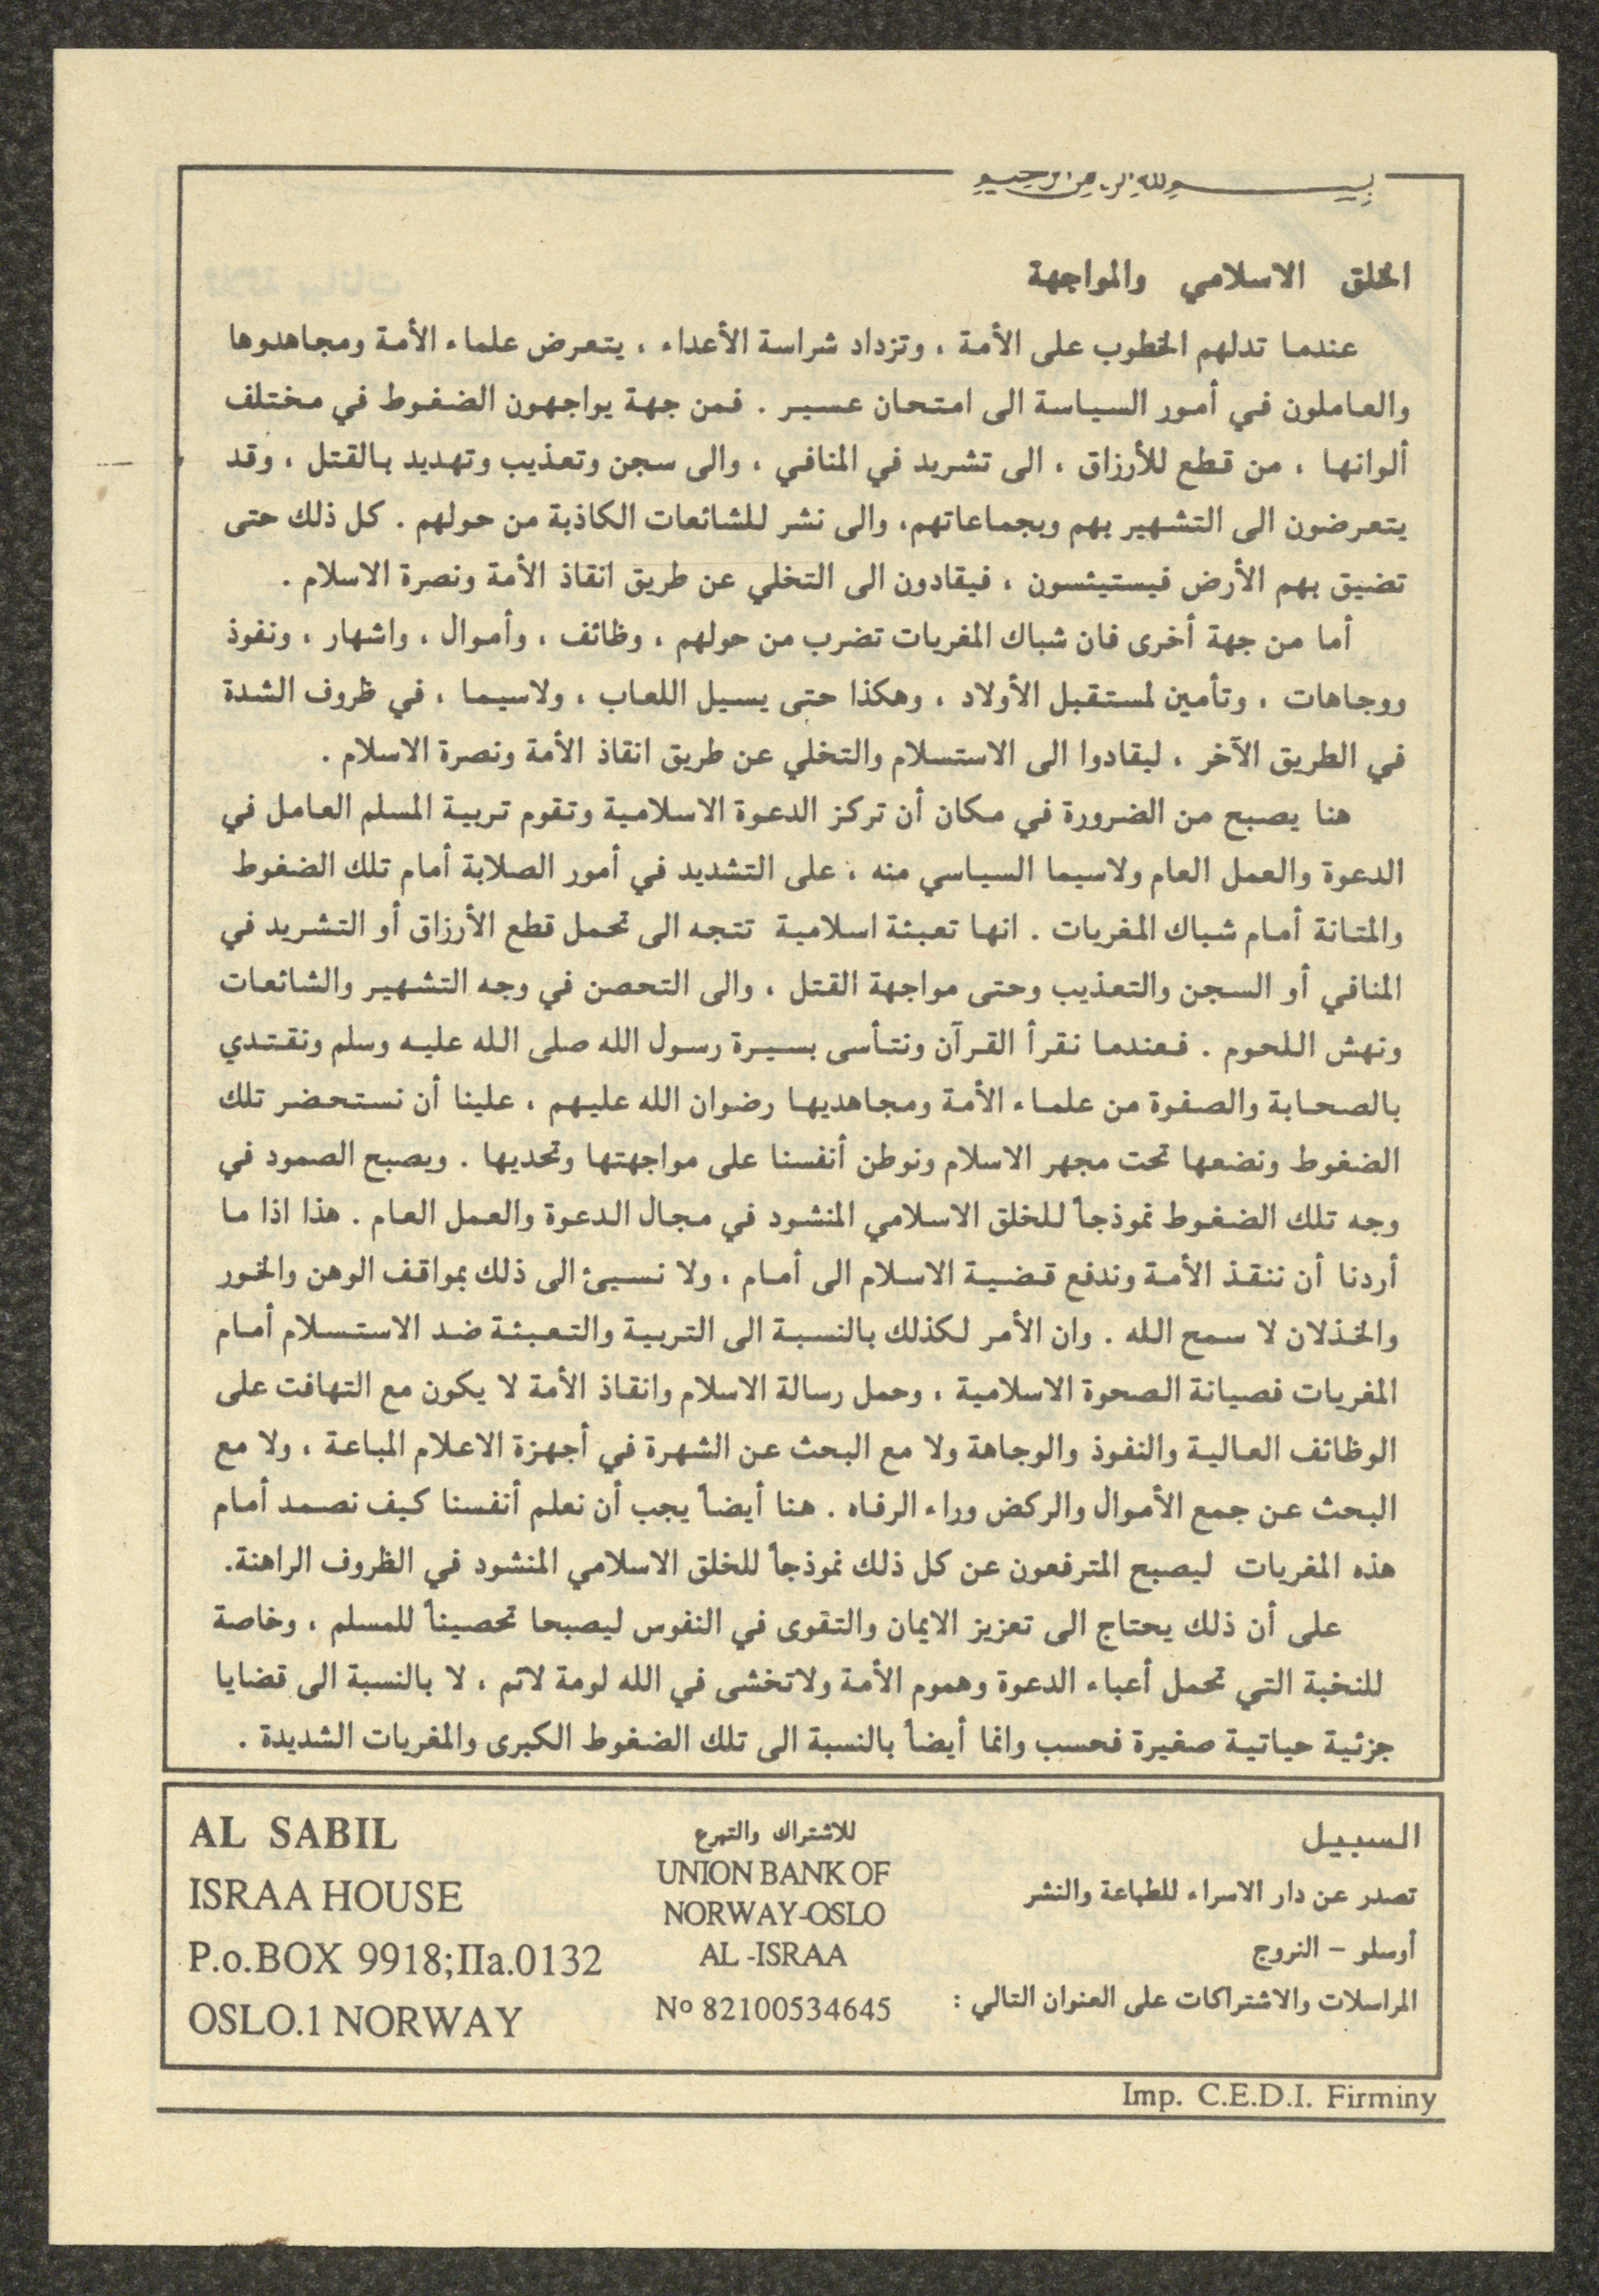 بسم الله الرحمن الرحيم
الخلق الاسلامي والمواجهة
عندما تدلهم الخطوب على الأمة ، وتزداد شراسة الأعداء ، يتعرض علماء الأمة ومجاهدوها
والعاملون في أمور السياسة الى امتحان عسير . فمن جهة يواجهون الضغوط في مختلف
ألوانها ، من قطع للأرزاق ، الى تشريد في المنافي ، والى سجن وتعذيب وتهديد بالقتل ، وقد
يتعرضون الى التشهير بهم وبجماعاتهم، والى نشر للشائعات الكاذبة من حولهم . كل ذلك حتى
تضيق بهم الأرض فيستيئسون ، فيقادون الى التخلي عن طريق انقاذ الأمة ونصرة الاسلام .
أما من جهة أخرى فان شباك المغريات تضرب من حولهم ، وظائف ، وأموال ، واشهار ، ونفوذ
ووجاهات ، وتأمين لمستقبل الأولاد ، وهكذا حتى يسيل اللعاب ، ولاسيما ، في ظروف الشدة
في الطريق الآخر ، ليقادوا الى الاستسلام والتخلي عن طريق انقاذ الأمة ونصرة الاسلام .
هنا يصبح من الضرورة في مكان أن تركز الدعوة الاسلامية وتقوم تربية المسلم العامل في
الدعوة والعمل العام ولاسيما السياسي منه ، على التشديد في أمور الصلابة أمام تلك الضغوط
والمتانة أمام شباك المغريات . انها تعبئة اسلامية تتجه الى تحمل قطع الأرزاق أو التشريد في
المنافي أو السجن والتعذيب وحتى مواجهة القتل ، والى التحصن في وجه التشهير والشائعات
ونهش اللحوم . فعندما نقرأ القرآن ونتأسى بسيرة رسول الله صلى الله عليه وسلم ونقتدي
بالصحابة والصفوة من علماء الأمة ومجاهديها رضوان الله عليهم ، علينا أن نستحضر تلك
الضغوط ونضعها تحت مجهر الاسلام ونوطن أنفسنا على مواجهتها وتحديها . ويصبح الصمود في
وجه تلك الضغوط نموذجاً للخلق الاسلامي المنشود في مجال الدعوة والعمل العام . هذا اذا ما
أردنا أن ننقذ الأمة وندفع قضية الاسلام الى أمام ، ولا نسيئ الى ذلك بمواقف الوهن والخور
والخذلان لا سمح الله . وان الأمر لكذلك بالنسبة الى التربية والتعبئة ضد الاستسلام أمام
المغريات فصيانة الصحوة الاسلامية ، وحمل رسالة الاسلام وانقاذ الأمة لا يكون مع التهافت على
الوظائف العالية والنفوذ والوجاهة ولا مع البحث عن الشهرة في أجهزة الاعلام المباعة ، ولا مع
البحث عن جمع الأموال والركض وراء الرفاه . هنا أيضاً يجب أن نعلم أنفسنا كيف نصمد أمام
هذه المغريات ليصبح المترفعون عن كل ذلك نموذجاً للخلق الاسلامي المنشود في الظروف الراهنة.
على أن ذلك يحتاج الى تعزيز الايمان والتقوى في النفوس ليصبحا تحصيناً للمسلم ، وخاصة
للنخبة التي تحمل أعباء الدعوة وهموم الأمة ولاتخشى في الله لومة لائم ، لا بالنسبة الى قضايا
جزئية حياتية صغيرة فحسب وانما أيضاً بالنسبة الى تلك الضغوط الكبرى والمغريات الشديدة .
السبيل
تصدر عن دار الاسراء للطباعة والنشر
أوسلو – النروج
المراسلات والاشتراكات على العنوان التالي :
للاشتراك والتبرع
UNION BANK OF
NORWAY-OSLO
AL -ISRAA
Nº 82100534645
AL SABIL
ISRAA HOUSE
P.o.BOX 9918;IIa.0132
OSLO.1 NORWAY
Imp. C.E.D.I. Firminy